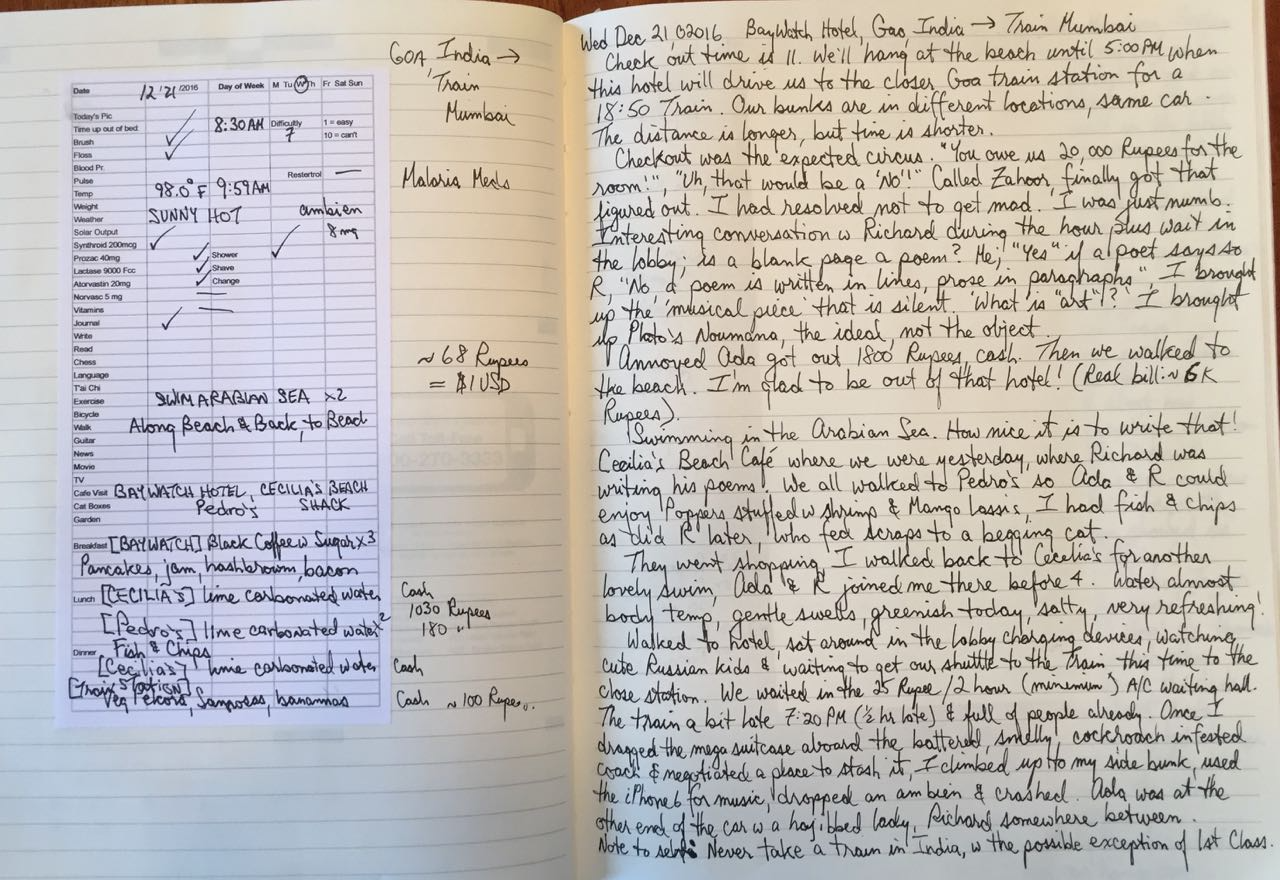 GOA India →
Train
Mumbai
Malaria Meds
~ 68 Rupees
= $1 USD
Cash
1030 Rupees
180 "
Cash
Cash ~100 Rupees.
Date 12/21/2016 Day of Week M Tu W Th Fr Sat Sun
Today's Pic
Time up out of bed 8:30AM Difficultly 7 1 = easy
Brush 10 = can't
Floss
Blood Pr.
Pulse Restertrol —
Temp 98.0°F 9:59AM
Weight
Weather SUNNY HOT ambien
Solar Output 8mg
Synthroid 200mcg
Prozac 40mg Shower
Lactase 9000 Fcc Shave
Atorvastin 20mg Change
Norvasc 5 mg
Vitamins
Journal
Write
Read
Chess
Language
T'ai Chi
Exercise SWIM ARABIAN SEA x2
Bicycle
Walk Along Beach & Back, to Bead
Guitar
News
Movie
TV
Cafe Visit BAYWATCH HOTEL, CECILIA'S BEACH
Cat Boxes Pedro's SHACK
Garden
Breakfast [BAYWATCH] Black Coffee w Sugar x3
Pancakes, jam, hashbrown, bacon
Lunch [CECILIA'S] lime carbonated water
[Pedro's] lime carbonated water x2
Dinner Fish & Chips
[Cecilia's] lime carbonated water
[Train Station]
Veg Pekora, Sanposas, banannas
Wed Dec 21 02016 BayWatch Hotel, Gao, India → Train Mumbai
Check out time is 11. We'll hang at the beach until 5:00 PM when
this hotel will drive us to the closer Goa train station for a
18:50 Train. Our bunks are in different locations, same car.
The distance is longer, but time is shorter.
Checkout was the expected circus. "You owe us 20,000 Rupees for the
room!", "Uh, that would be a 'No'!" Called Zahoor finally got that
figured out. I had resolved not to get mad. I was just numb.
Interesting conversation w Richard during the hour plus wait in
the lobby; is a blank page a poem? Me; "Yes" if a poet says so
R, "No, a poem is written in lines, prose in paragraphs". I brought
up the 'musical piece' that is silent. 'What is "art"!?' I brought
up Plato's Noumana, the ideal, not the object.
Annoyed Ada got out 1800 Rupees, cash. Then we walked to
the beach. I'm glad to be out of that hotel! (Real bill: ~ 6K
Rupees).
Swimming in the Arabian Sea. How nice it is to write that!
Cecilia's Beach Café where we were yesterday, where Richard was
writing his poems! We all walked to Pedro's so Ada & R could
enjoy Poppers stuffed w shrimp & Mango Lassis, I had fish & chips
as did R later, who fed scraps to a begging cat.
They went shopping, I walked back to Cecelia's for another
lovely swim, Ada & R joined me there before 4. Water almost
body temp, gentle swells, greenish today, salty, very refreshing!
Walked to hotel, sat around in the lobby charging devices, watching
cute Russian kids & waiting to get our shuttle to the train this time to the
close station. We waited in the 25 Rupee/2 hour (minimum) A/C waiting hall.
The train a bit late 7:20 PM (½ hr late) & full of people already. Once I
dragged the mega suitcase aboard the battered, smelly cockroach infested
coach & negotiated a place to stash it, I climbed up to my side bunk, used
the iPhone6 for music, dropped an ambien & crashed. Ada was at the
other end of the car w a hajibbed lady, Richard somewhere between.
Note to self: Never take a train in India, w the possible exception of 1st Class.